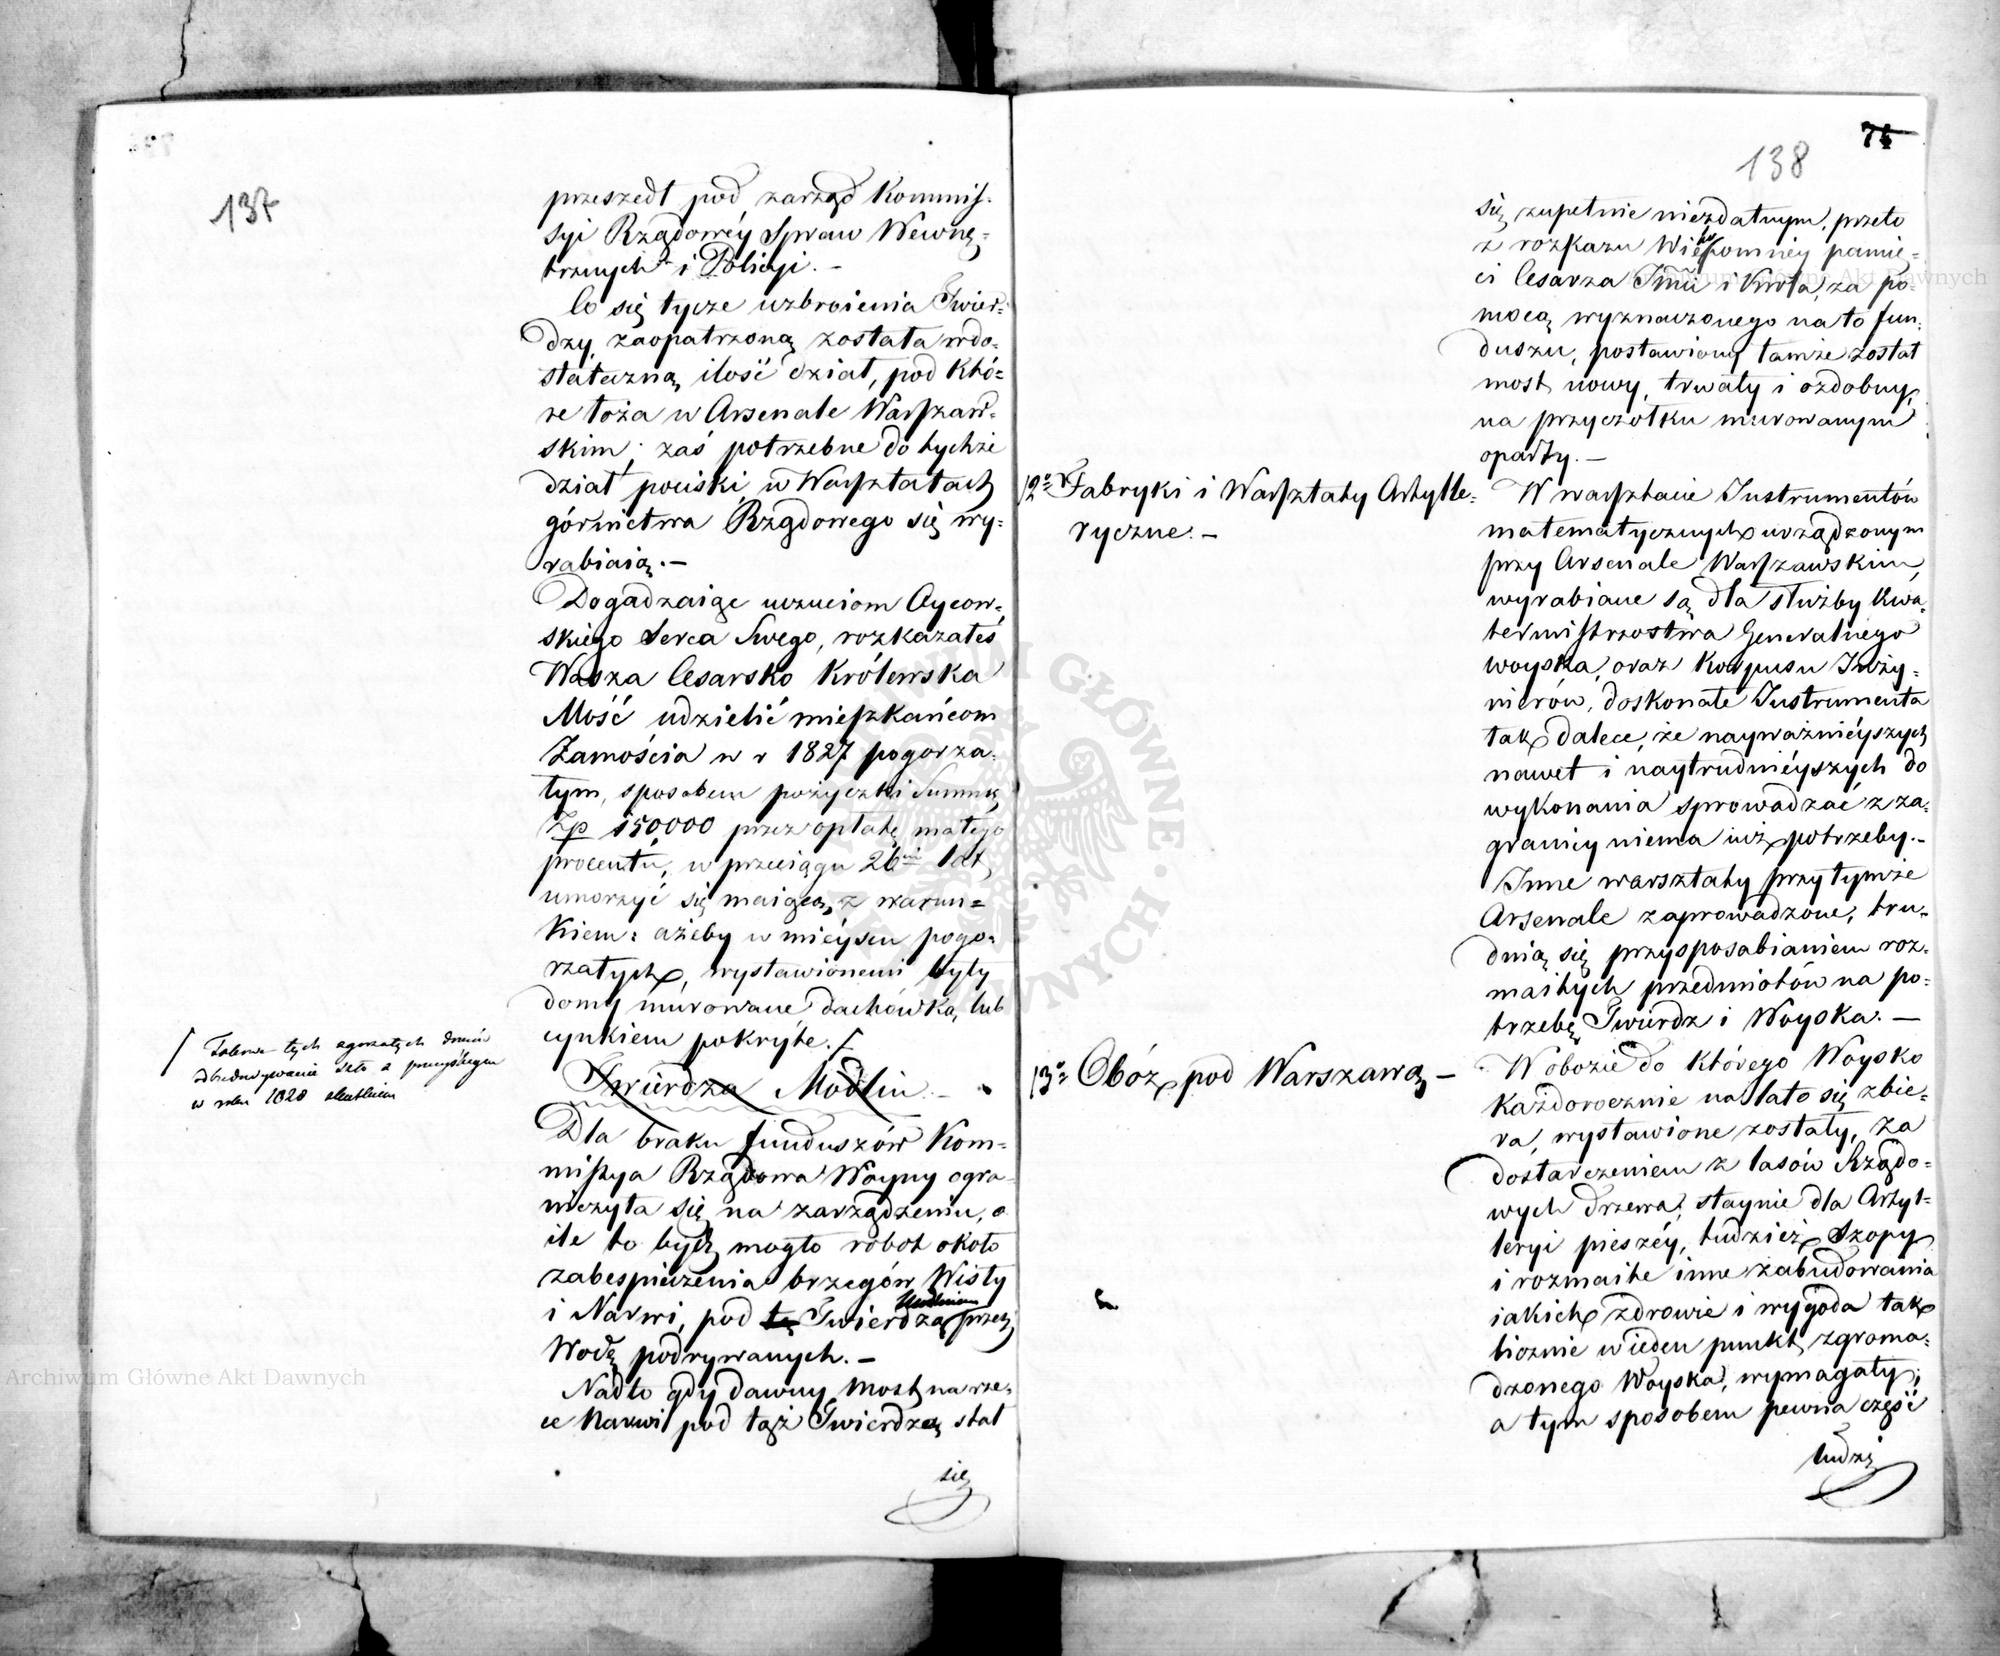 137
przeszedł pod zarząd Kommis-
syi Rządowéy Spraw Wewnę-
trznych i Policyi. –
Co się tycze uzbroienia Twier-
dzy, zaopatrzoną została w do-
stateczną ilość dział, pod któ-
re łoża w Arsenale Warszaw-
skim; zaś potrzebne do tychże
dział pociski w Warsztatach
górnictwa Rządowego się wy-
rabiaią. –
Dogadzaiąc uczuciom Oycow-
skiégo Serca Swego, rozkazałeś
Wasza Cesarsko Królewska
Mość udzielić mieszkańcom
Zamościa w r 1827 pogorza-
łym, sposobem pożyczki Summę
Zp 150000 przez opłatę małego
procentu, w przeciągu 26ciu lat
umorzyć się maiącą, z warun-
kiem: ażeby w mieyscu pogo-
rzałych, wystawionemi były
domy murowane dachówką lub
cynkiem pokryte. /
/ tych zgorzałych domów
odbudowywanie szło z pomyślnym
w roku 1828 skutkiem
Twierdza Modlin. –
Dla braku funduszów Kom-
missya Rządowa Woyny ogra-
niczyła się na zarządzeniu, o
ile to bydź mogło robot około
zabespieczenia brzegów Wisły
i Narwi, pod tą Twierdzą Modlinem przez
Wodę podrywanych. –
Nadto gdy dawny Most na rze-
ce Narwi pod tąż Twierdzą stał
się
74
138
się zupełnie niezdatnym, przeto
z rozkazu Wiekopomnéy pamię-
ci Cesarza Jmci i Króla, za po-
mocą wyznaczonego na to fun-
duszu, postawiony tamże został
most nowy, trwały i ozdobny,
na przyczółku murowanym
oparty. –
12o Fabryki i Warsztaty Artylle-
ryczne. –
W warsztacie Instrumentów
matematycznych urządzonym
przy Arsenale Warszawskim,
wyrabiane są dla służby Kwa-
termistrzostwa Generalnego
woyska, oraz Korpusu Inży-
nierów, doskonałe Instrumenta
tak dalece, że nayważnieyszych
nawet i naytrudnieyszych do
wykonania sprowadzać z za-
granicy niema iuż potrzeby. –
Inne warsztaty przy tymże
Arsenale zaprowadzone, tru-
dnią się przysposabianiem roz-
maitych przedmiotów na po-
trzebę Twierdz i Woyska. –
13o Obóz pod Warszawą –
W obozie do którego Woysko
każdorocznie na lato się zbie-
ra, wystawione zostały, za
dostarczeniem z lasów Rządo-
wych drzewa, staynie dla Artyl-
leryi pieszéy, tudzież Szopy
i rozmaite inne zabudowania
iakich zdrowie i wygoda tak
licznie w ieden punkt zgroma-
dzonego Woyska, wymagały;
a tym sposobem pewna część
ludzi
Archiwum Główne Akt Dawnych